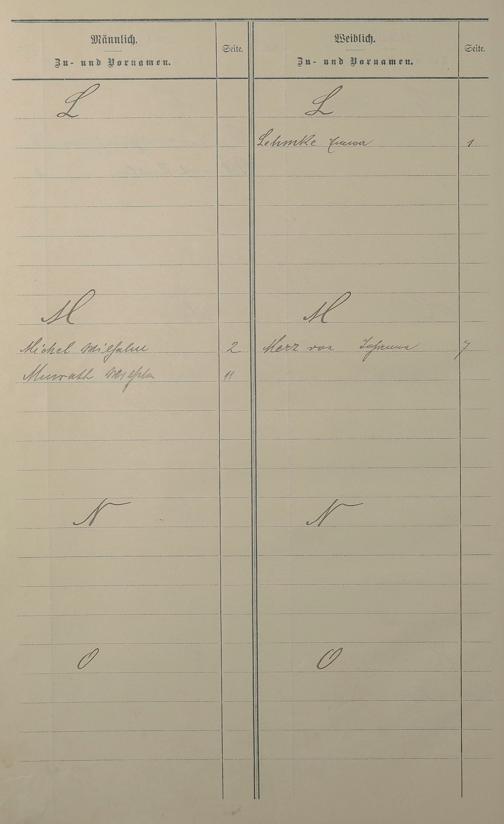 Männlich.
Zu- und Vornamen.
Seite.
Weiblich.
Zu- und Vornamen.
Seite.
L
L
Lehmke Emma 1
M
M
Michel Wilhelm 2
Merz von Johanna 7
Wilhelm 11
N
N
O
O